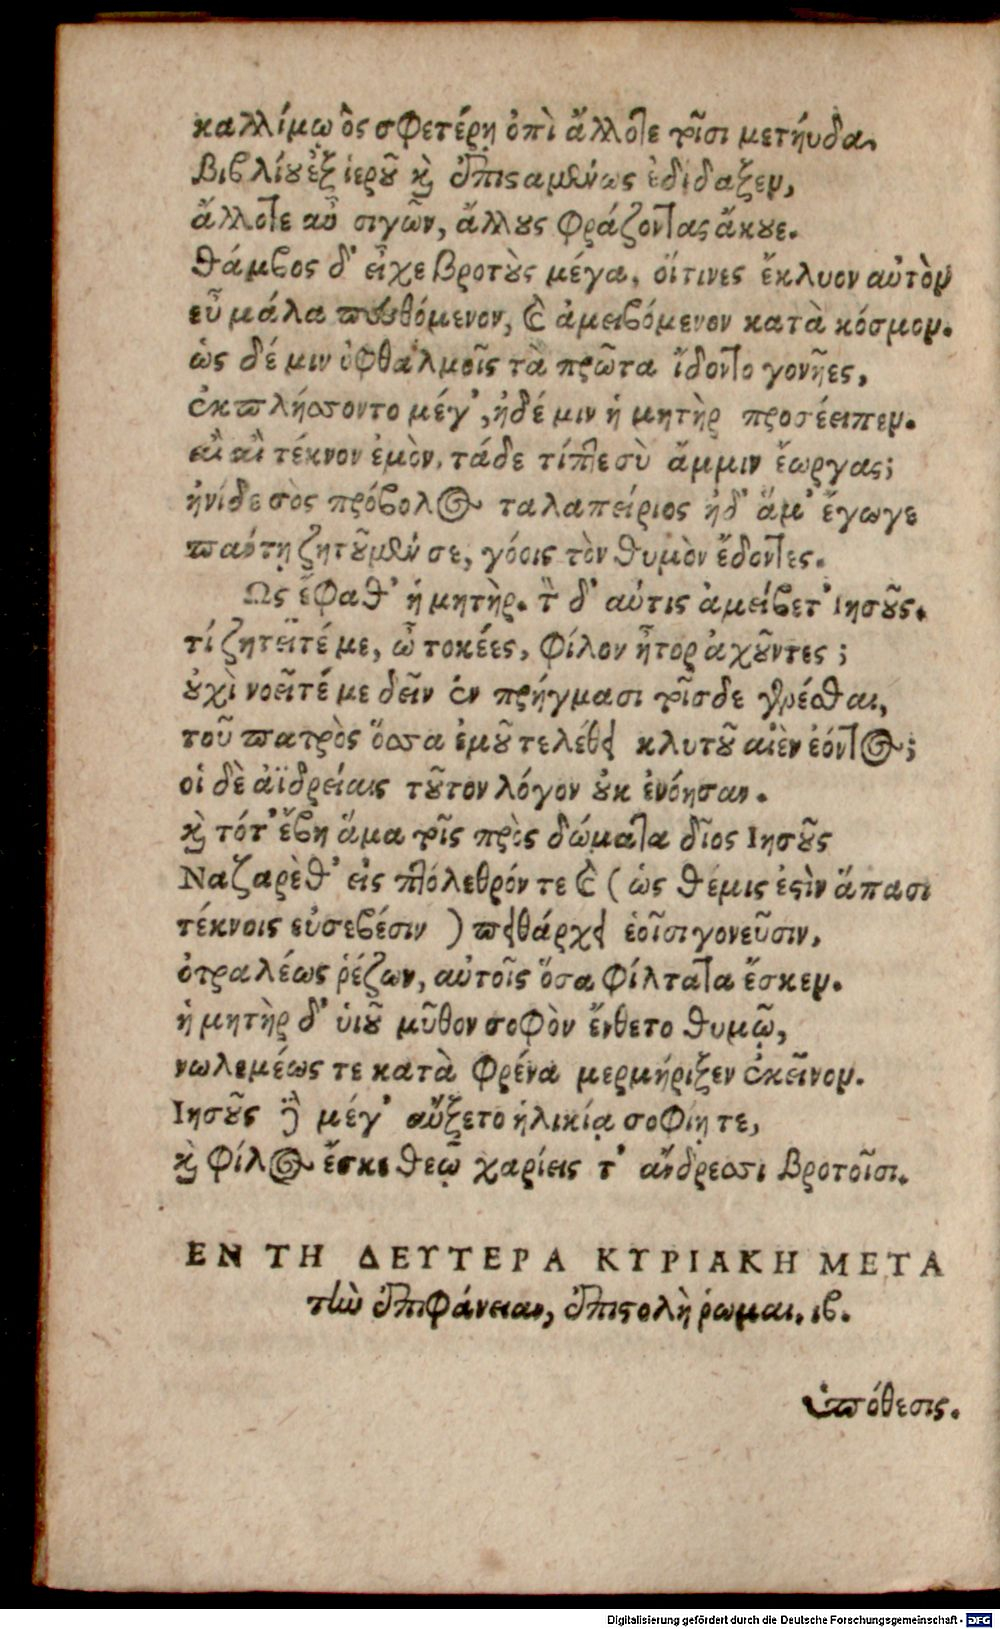 καλλίμῳ ὃς σφετέρῃ ὀπὶ ἄλλοτε τοῖσι μετηύδα,
Βιβλίου ἐξ ἱεροῦ καὶ ἐπισαμένως ἐδίδαξεν,
ἄλλοτε αὖ σιγῶν, ἄλλους φράζοντας ἄκουε.
θάμβος δ' εἶχε βροτοὺς μέγα, οἵτινες ἔκλυον αὐτὸν
εὖ μάλα πευθόμενον, καὶ ἀμειβόμενον κατὰ κόσμον.
ὡς δέ μιν ὀφθαλμοῖς τὰ πρῶτα ἴδοντο γονῆες,
ἐκπλήσσοντο μέγ', ἠδέ μιν ἡ μητὴρ προσέειπεν.
αἲ αἲ τέκνον ἐμὸν, τάδε τίπτε σὺ ἄμμιν ἔωργας;
ἠνίδε σὸς πρόβολος ταλαπείριος ἠδ' ἅμ' ἔγωγε
πάντη ζητοῦμέν σε, γόοις τὸν θυμὸν ἔδοντες.
Ως ἔφαθ' ἡ μητὴρ. τὴν δ' αὖτις ἀμείβετ' Ιησοῦς.
τί ζητεῖτέ με, ὦ τοκέες, φίλον ἦτορ ἀχοῦντες;
οὐχὶ νοεῖτέ με δεῖν ἐν πρήγμασι τοῖσδε γενέσθαι,
τοῦ πατρὸς ὅσσα ἐμοῦ τελέθει κλυτοῦ αἰὲν ἐόντος;
οἱ δὲ ἀϊδρείαις τοῦτον λόγον οὐκ ἐνόησαν.
καὶ τότ' ἔβη ἅμα τοῖς πρὸς δώματα δῖος Ιησοῦς
Ναζαρὲθ' εἰς πτόλεθρόν τε καὶ (ὡς θέμις ἐστὶν ἅπασι
τέκνοις εὐσεβέσιν ) πειθάρχει ἑοῖσι γονεῦσιν,
ὀτραλέως ῥέζων, αὐτοῖς ὅσα φίλτατα ἔσκεν.
ἡ μητὴρ δ' ὑιοῦ μῦθον σοφὸν ἔνθετο θυμῷ,
νωλεμέως τε κατὰ φρένα μερμήριξεν ἐκεῖνον.
Ιησοῦς δὲ μέγ' αὔξετο ἡλικίᾳ σοφίῃ τε,
καὶ φίλος ἔσκε θεῷ χαρίεις τ' ἄνδρεσσι βροτοῖσι.
ΕΝ ΤΗ ΔΕΥΤΕΡΑ ΚΥΡΙΑΚΗ ΜΕΤΑ
τὴν ἐπιφάνειαν, ἐπιστολὴ ῥωμαι. ιβ.
ὑπόθεσις.
Digitalisierung gefördert durch die Deutsche Forschungsgemeinschaft - DFG